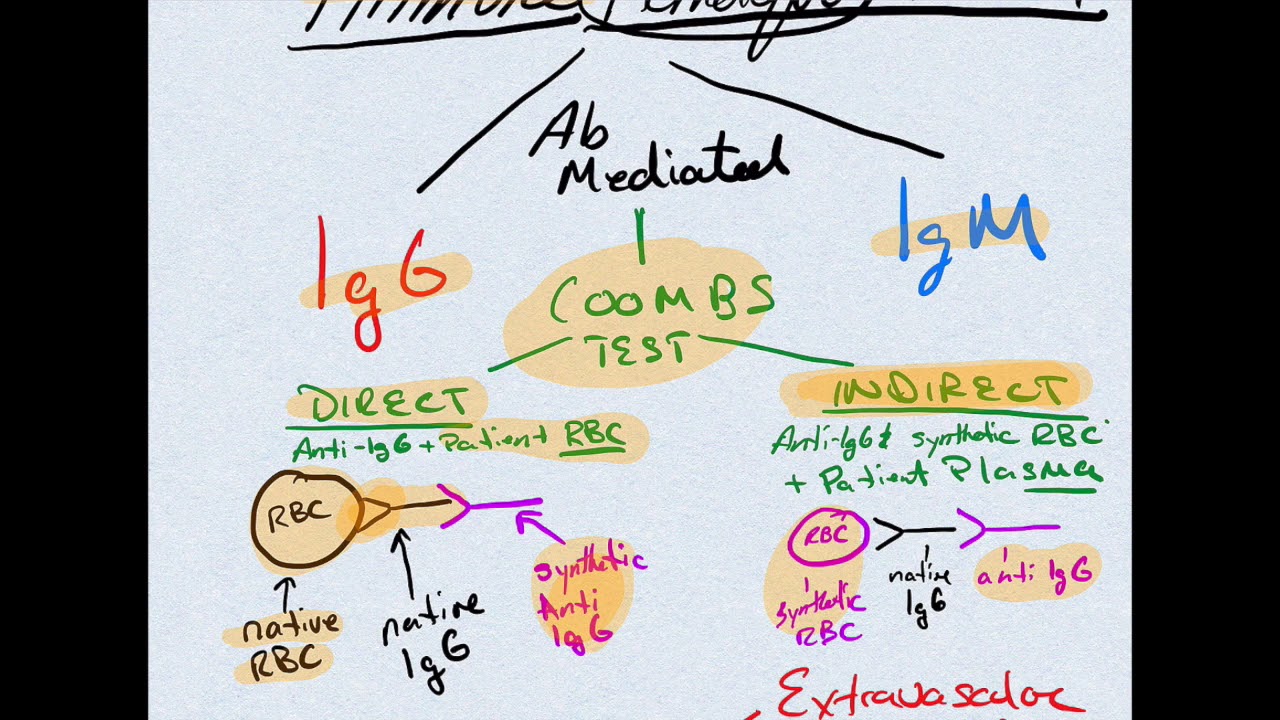 Immune Hemolytic
Ab
Mediated
IgG
IgM
COOMBS
TEST
DIRECT
Anti-IgG + Patient RBC
INDIRECT
Anti-IgG & synthetic RBC
+ Patient Plasma
RBC
native
RBC
native
IgG
synthetic
Anti
IgG
RBC
synthetic
RBC
native
IgG
anti IgG
Extravascular